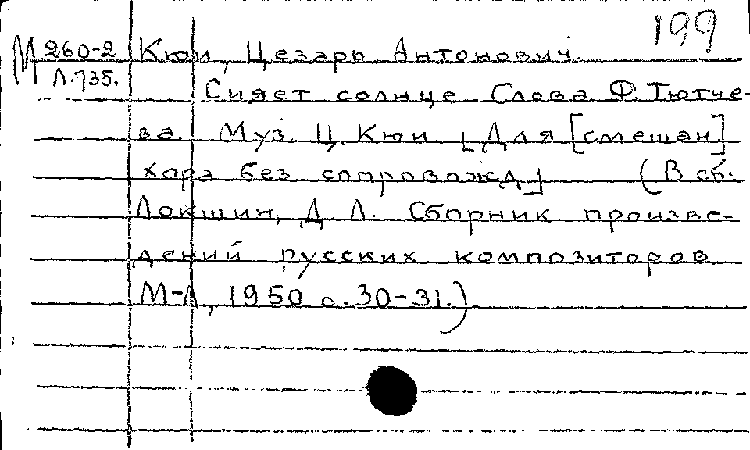 199
М 260-2 Кюи, Цезарь Антонович.
Л.735.
Сияет солнце Слова Ф. Тютче-
ва. Муз. Ц. Кюи [Для [смешан]
хора без сопровожд.] (В сб.
Локшин, Д Л. Сборник произве-
дений русских композиторов
М-Л, 1950 с. 30-31.)